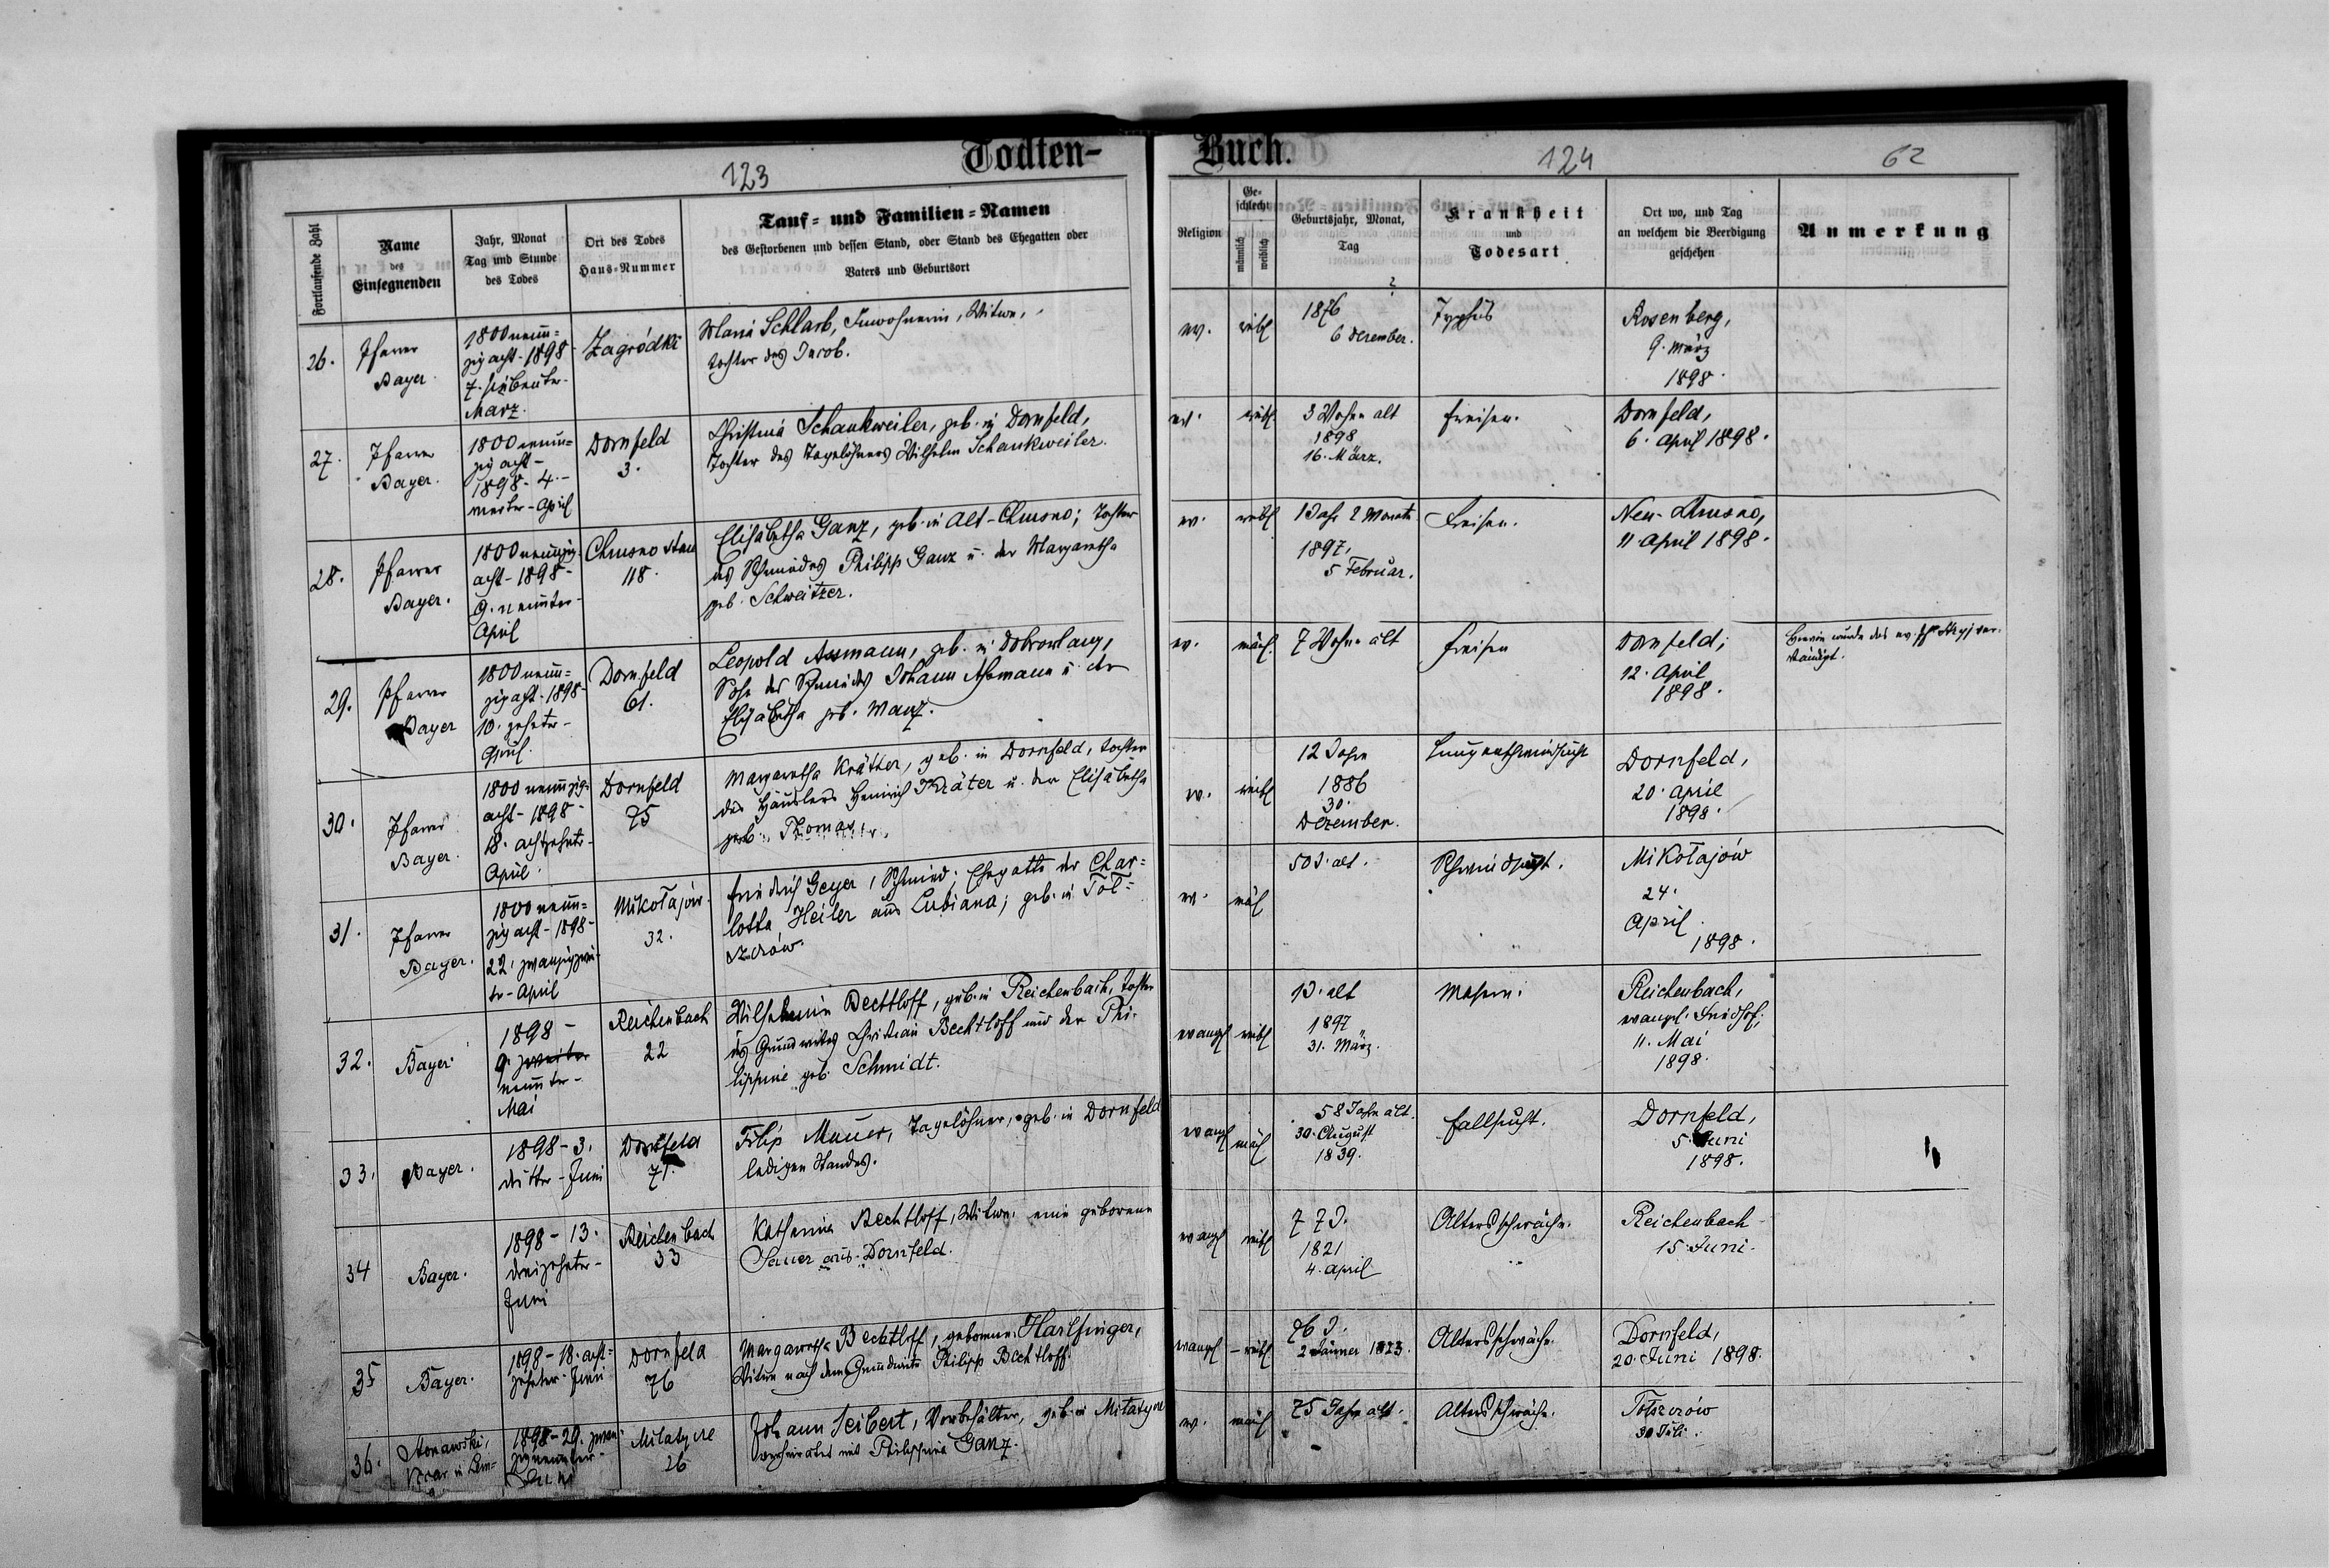 Todten-
Buch.
123
124
62
Fortlaufende Zahl
Name
des
Einsegnenden
Jahr, Monat
Tag und Stunde
des Todes
Ort des Todes
Haus-Nummer
Tauf- und Familien-Namen
des Gestorbenen und dessen Stand, oder Stand des Ehegatten oder
Vaters und Geburtsort
Religion
Ge-
schlecht
männlich
weiblich
Geburtsjahr, Monat,
Tag
Krankheit
und
Todesart
Ort wo, und Tag
an welchem die Beerdigung
geschehen
Anmerkung
26.
Pfarrer
Bayer.
1800 neun-
zig acht - 1898
7. siebenter
März.
Zagródki
Maria Schlarb, Inwohnerin, Witwe,
Tochter des Jacob.
ev.
weibl
?
1876
6 Dezember.
Typhus
Rosenberg,
9. März
1898.
27.
Pfarrer
Bayer.
1800 neun-
zig acht -
1898 - 4. -
vierter - April
Dornfeld
3.
Christina Schankweiler, geb. in Dornfeld,
Tochter des Tagelöhners Wilhelm Schankweiler.
ev.
weibl.
3 Wochen alt
1898
16. März.
Freisen.
Dornfeld,
6. April 1898.
28.
Pfarrer
Bayer.
1800 neunzig-
acht - 1898 -
9. neunter -
April
Chrusno
118.
Elisabetha Ganz, geb. in Alt-Chrusno; Tochter
des Schmiedes Philipp Ganz u. der Margaretha
geb. Schweitzer.
ev.
weibl
1 Jahr 2 Monate
1897,
5 Februar.
Freisen.
Neu-Chrusno,
11. April 1898.
29.
Pfarrer
Bayer
1800 neun-
zig acht - 1898 -
10. zehnter -
April.
Dornfeld
61.
Leopold Assmann, geb. in
Sohn des Schmiedes Johann Assmann u. der
Elisabetha geb. Manz.
ev.
mänl.
7 Wochen alt
Freisen
Dornfeld;
12. April
1898.
wurde das ev.
ständigt.
30.
Pfarrer
Bayer.
1800 neunzig-
acht - 1898 -
18. achtzehnter -
April.
Dornfeld
75
Margaretha Krätter, geb. in Dornfeld, Tochter
des Häuslers Heinrich Kräter u. der Elisabetha
geb. Thomas.
ev.
weibl
12 Jahre
1886
30.
Dezember.
Lungenschwindsucht
Dornfeld,
20. April
1898.
31.
Pfarrer
Bayer.
1800 neun-
zig acht - 1898 -
22. zwanzigzwei-
ter - April
Mikołajów.
32.
Friedrich Geyer, Schmied; Ehegatte der Char-
lotta Heiler aus Lubiana; geb. in Toł-
szczów.
ev.
mänl
50 J. alt.
Schwindsucht.
Mikołajów
24.
April
1898.
32.
Bayer.
1898 -
9. zweiter
neunter -
Mai
Reichenbach
22
Wilhelmin Bechtloff, geb. in Reichenbach, Tochter
des Grundwirtes Christian Bechtloff und der Phi-
lippine geb. Schmidt.
evangl
weibl
1 J. alt
1897
31. März.
Masern.
Reichenbach,
evangel. Friedhof,
11. Mai
1898.
33.
Bayer.
1898 - 3.
dritter - Juni
Dornfeld
71.
Filip Mauer, Tagelöhner, geb. in Dornfeld
ledigen Standes.
evangl
mänl
58 Jahre alt.
30. August
1839.
Fallsucht.
Dornfeld,
5. Juni
1898.
34
Bayer.
1898 - 13.
dreizehnter -
Juni
Reichenbach
33
Katharina Bechtloff, Witwe, eine geborene
Sauer aus Dornfeld.
evangl
weibl
77 J.
1821
4. April
Altersschwäche.
Reichenbach
15. Juni.
35
Bayer.
1898 - 18. acht-
zehnter - Juni
Dornfeld
76
Margaretha Bechtloff, geborene Harlfinger,
Witwe nach dem Grundwirte Philipp Bechtloff.
evangl
- weibl
76 J.
2 Jänner 1823.
Altersschwäche.
Dornfeld,
20. Juni 1898.
36.
Vicar in Lem-
1898 - 29. zwan-
zigneunter -
Juni
Milatyne
26
Johann Seibert, Vorbehälter, geb. in Milatyne
verheiratet mit Philippina Ganz.
ev.
mänl
75 Jahre alt.
Altersschwäche.
Tołszczów
30 Juli.